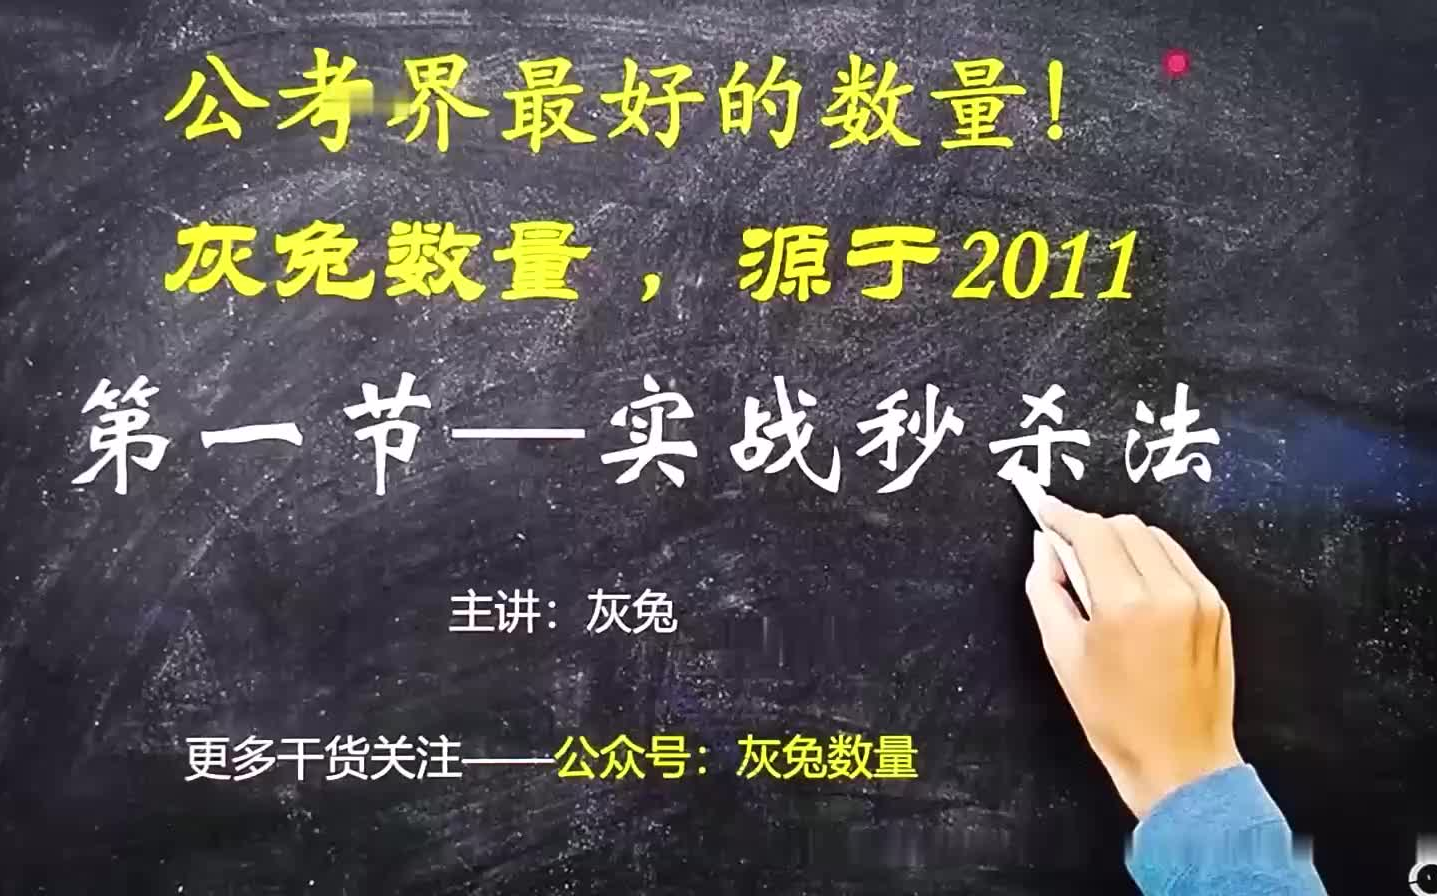 公考界最好的数量!
灰兔数量，源于2011
第一节—实战秒杀法
主讲：灰兔
更多干货关注——公众号：灰兔数量